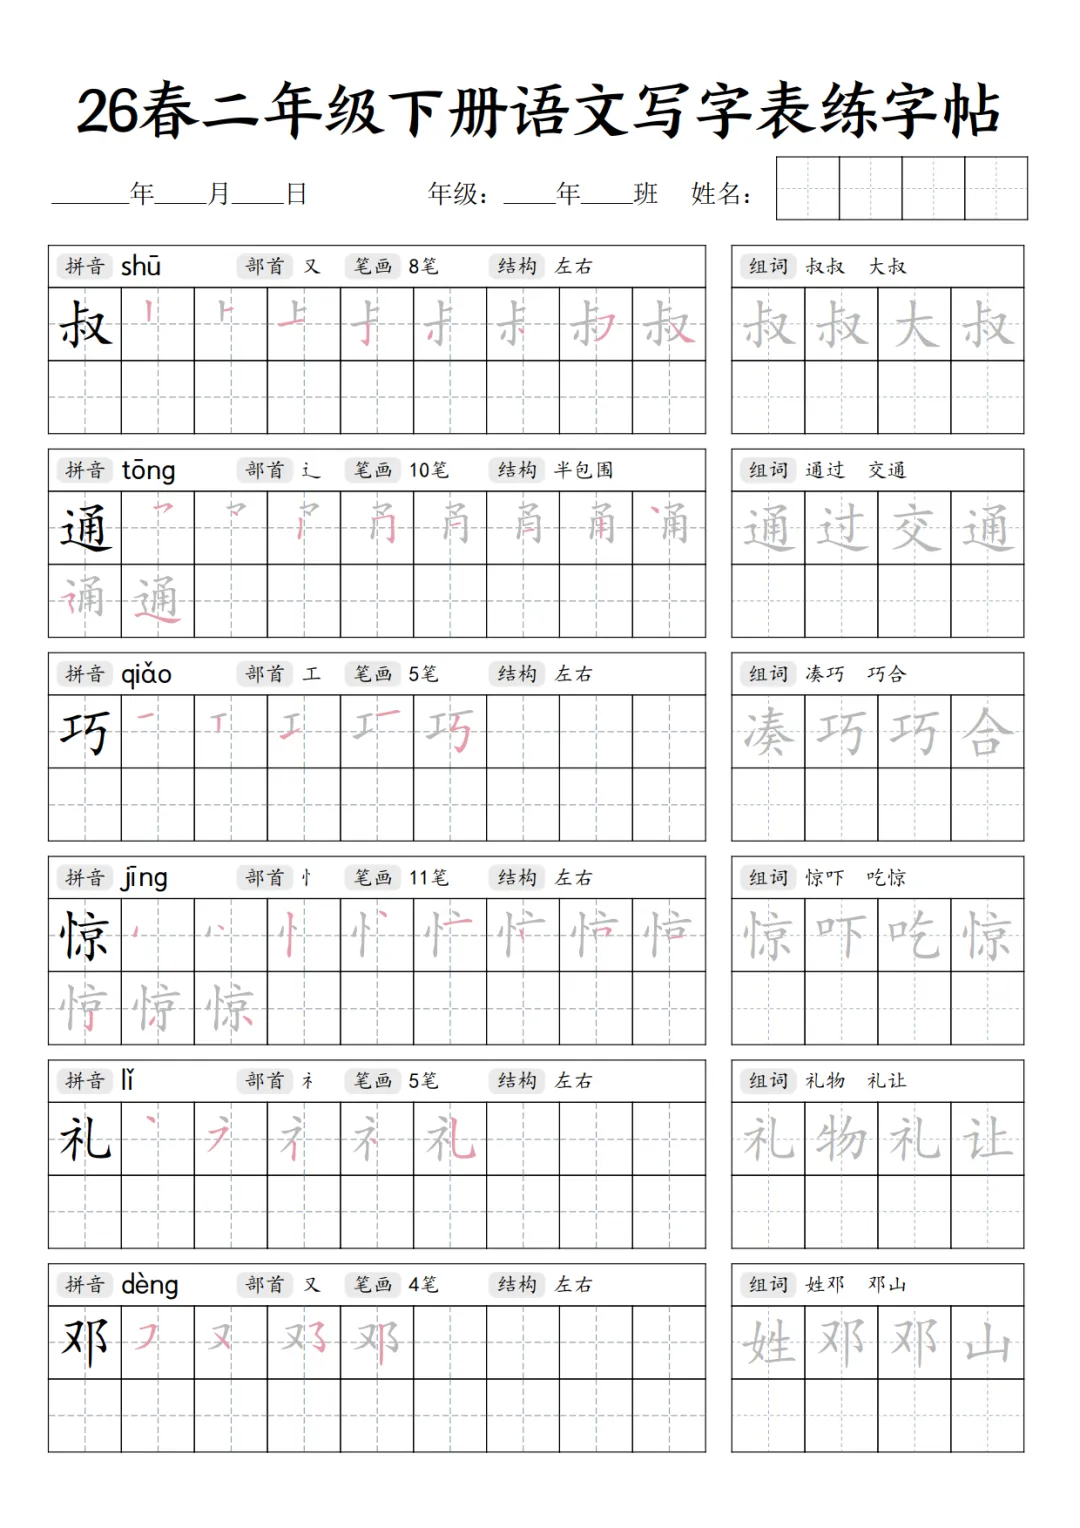 26春二年级下册语文写字表练字帖
______年____月____日 年级：____年____班 姓名：
拼音 shū 部首 又 笔画 8笔 结构 左右 组词 叔叔 大叔
叔 叔 叔 叔 大 叔
拼音 tōng 部首 辶 笔画 10笔 结构 半包围 组词 通过 交通
通 甬 通 过 交 通
通
拼音 qiǎo 部首 工 笔画 5笔 结构 左右 组词 凑巧 巧合
巧 工 巧 凑 巧 巧 合
拼音 jīng 部首 忄 笔画 11笔 结构 左右 组词 惊吓 吃惊
惊 忄 惊 吓 吃 惊
惊
拼音 lǐ 部首 礻 笔画 5笔 结构 左右 组词 礼物 礼让
礼 礻 礼 礼 物 礼 让
拼音 dèng 部首 又 笔画 4笔 结构 左右 组词 姓邓 邓山
邓 又 邓 姓 邓 邓 山